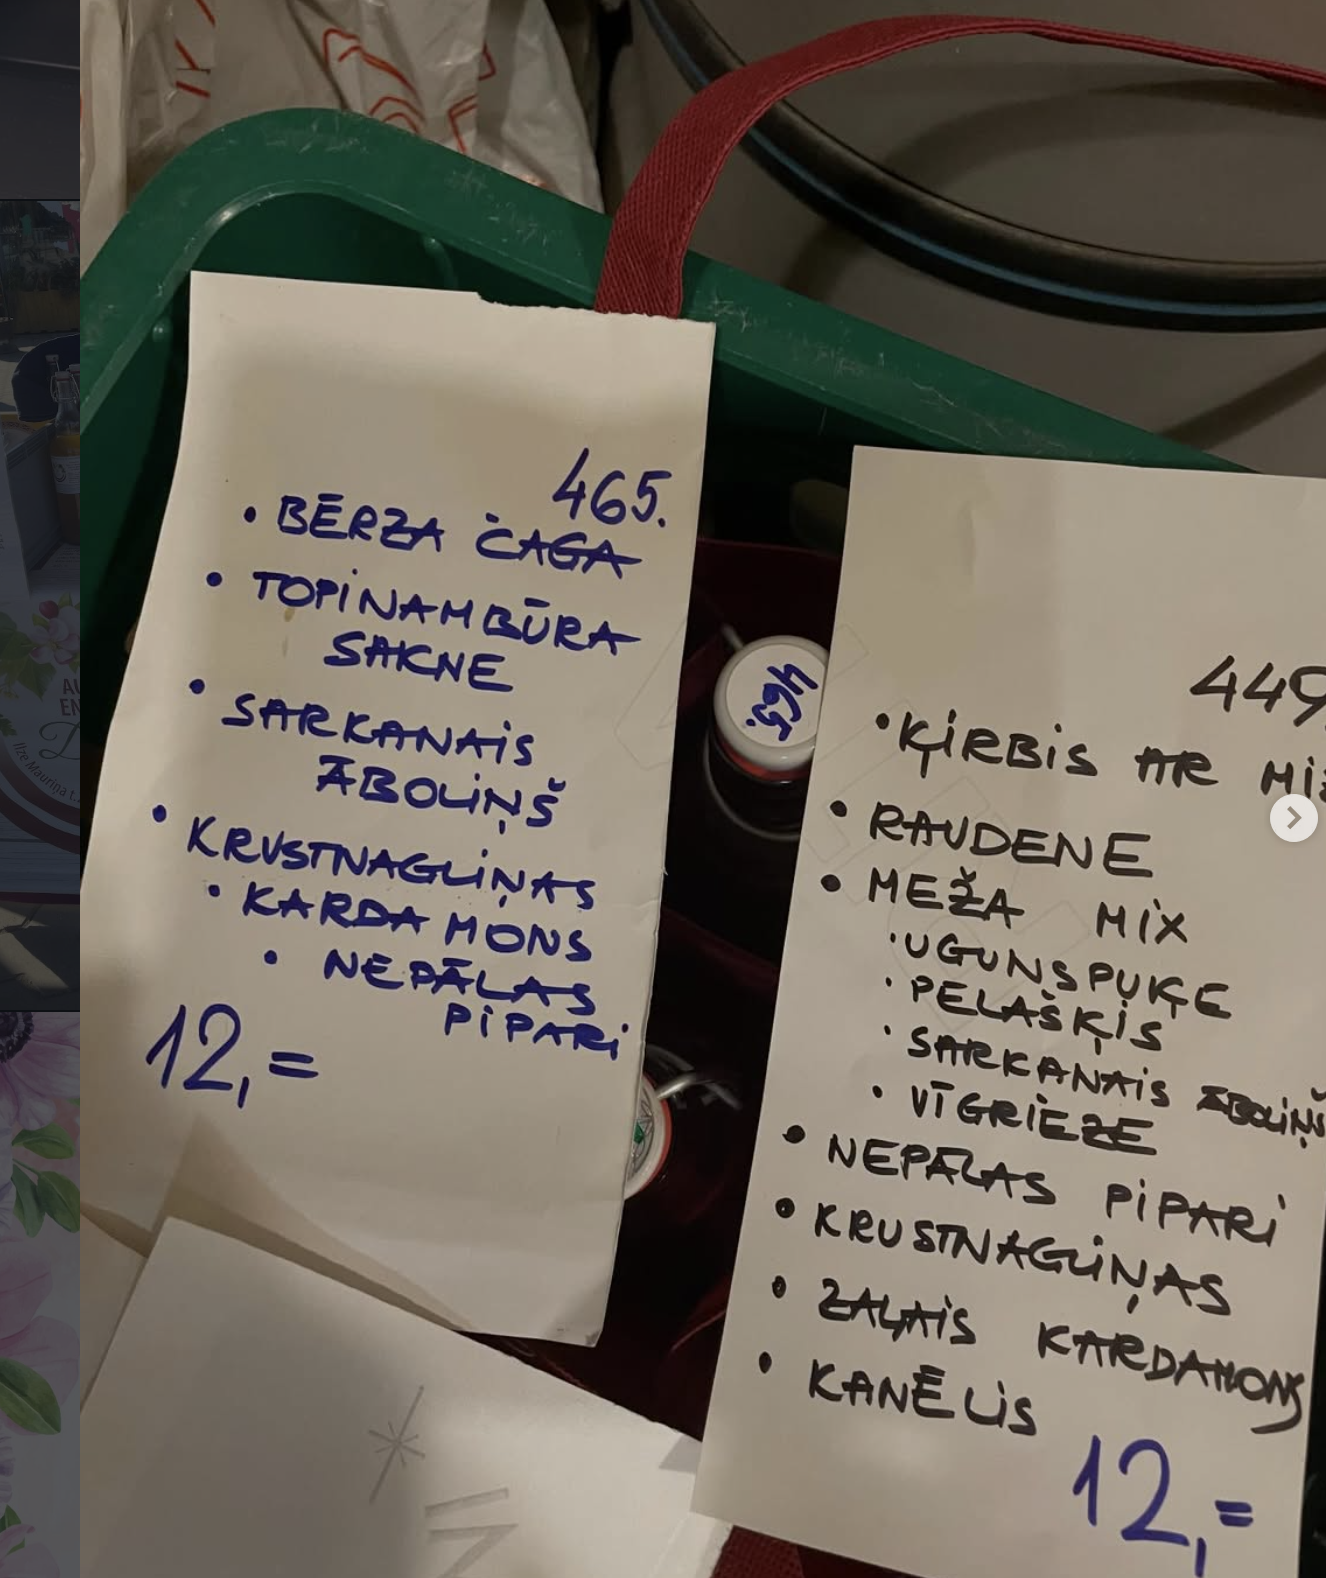 465.
• BĒRZA ČAGA
• TOPINAMBŪRA
SAKNE
• SARKANAIS
ĀBOLIŅŠ
• KRUSTNAGLIŅAS
• KARDAMONS
• NEPĀLAS
PIPARI
12,=
465.
449
• ĶIRBIS AR
• RAUDENE
• MEŽA MIX
• UGUNSPUĶE
• PELAŠĶIS
• SARKANAIS ĀBOLIŅŠ
• VĪGRIEZE
• NEPĀLAS PIPARI
• KRUSTNAGLIŅAS
• ZAĻAIS KARDAMONS
• KANĒLIS
12,=